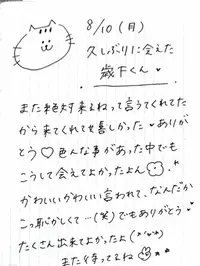 8/10 (月)
久しぶりに会えた
歳下くん♥
また絶対来るねって言うてくれてた
から来てくれて嬉しかった♥ありが
とう♡色んな事があった中でも
こうして会えてよかったよん
かわいいかわいい言われて、なんだか
こっ恥かしくて…(笑)でもありがとう♥
たくさん出来てよかったよ(*'∀'*)
また待ってるね